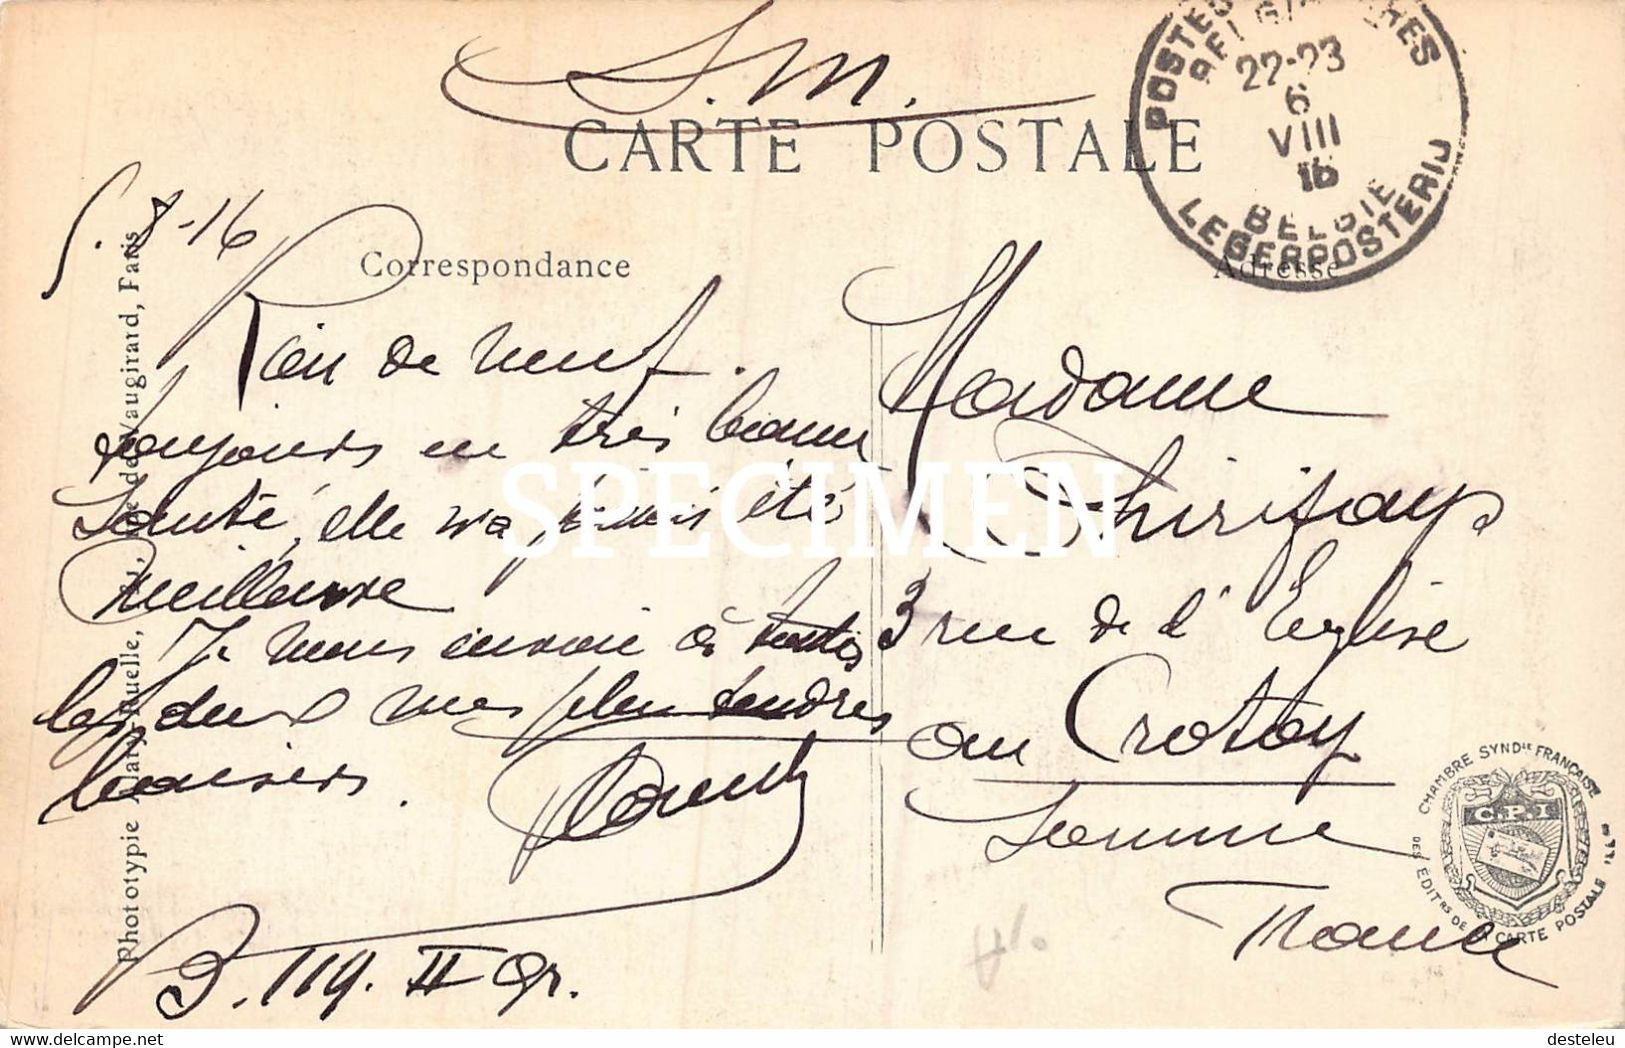 S.M.
CARTE POSTALE
POSTES BELGIQUES
22-23
6
VIII
16
BELGIE
LEGERPOSTERIJ
5. 8-16
Correspondance
Adresse
Rien de neuf.
toujours en très bonne
Santé, elle n'a jamais été
meilleure
Je vous envoie à toutes
les deux mes plus tendres
baisers.
B. 119. II Gr.
Madame
Thirifays
3 rue de l'Eglise
au Crotoy
Somme
France
Phototypie Marq-Ruelle, rue de Vaugirard, Paris
CHAMBRE SYNDle FRANÇAISE
DES EDITrs DE LA CARTE POSTALE
C.P.I
SPECIMEN
delcampe.net
desteleu